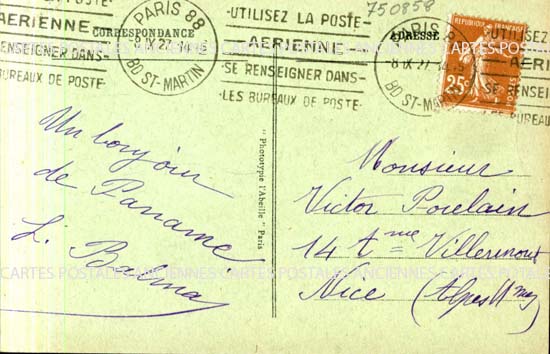 750858
PARIS 88
8 IX 27
BD ST-MARTIN
UTILISEZ LA POSTE
AERIENNE
SE RENSEIGNER DANS
LES BUREAUX DE POSTE
LA POSTE
AERIENNE
RENSEIGNER DANS
BUREAUX DE POSTE
CORRESPONDANCE
ADRESSE
PARIS
8 IX 27
BD ST-MARTIN
UTILISEZ
AERIENNE
SE RENSEIGNER
LES BUREAUX
25c
Un bonjour
de Paname
L. Balma
"Phototypie l'Abeille" Paris
Monsieur
Victor Porelain
14 Villermont
Nice (Alpes Mmes)
CARTES POSTALES ANCIENNES CARTES POSTALES ANCIENNES
CARTES POSTALES ANCIENNES CARTES POSTALES ANCIENNES